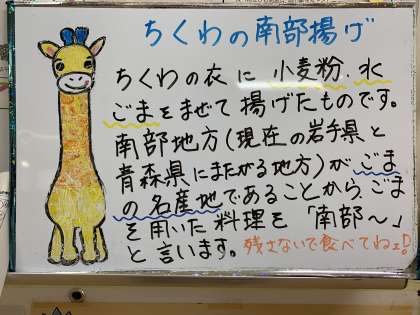 ちくわの南部揚げ
ちくわの衣に小麦粉、水
ごまをまぜて揚げたものです。
南部地方(現在の岩手県と
青森県にまたがる地方)がごま
の名産地であることから、ごま
を用いた料理を「南部～」
と言います。残さないで食べてねェ!